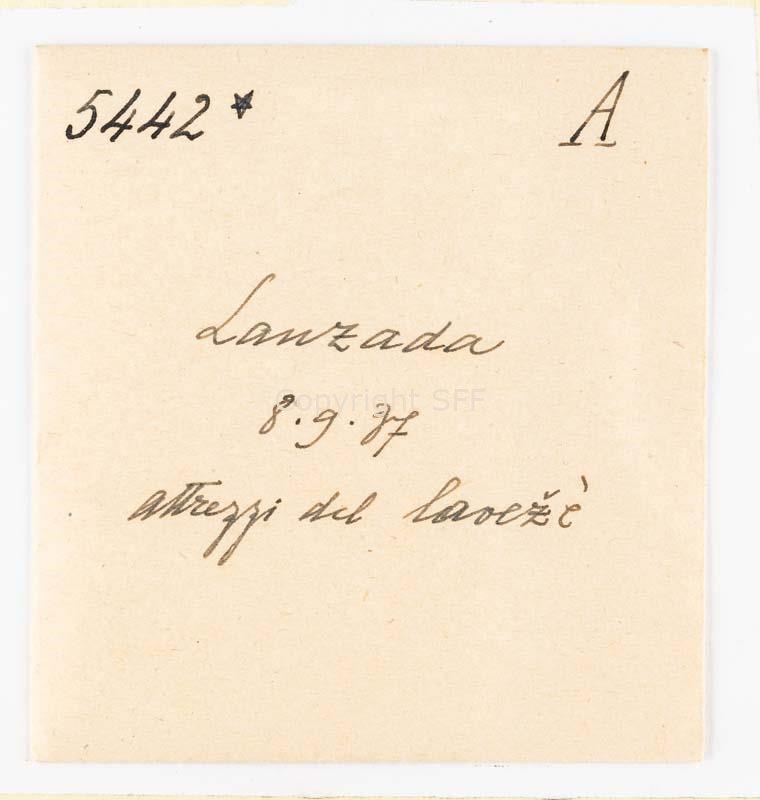 5442* A
Lanzada
Copyright SFF
8.9.37
attrezzi del lavežè